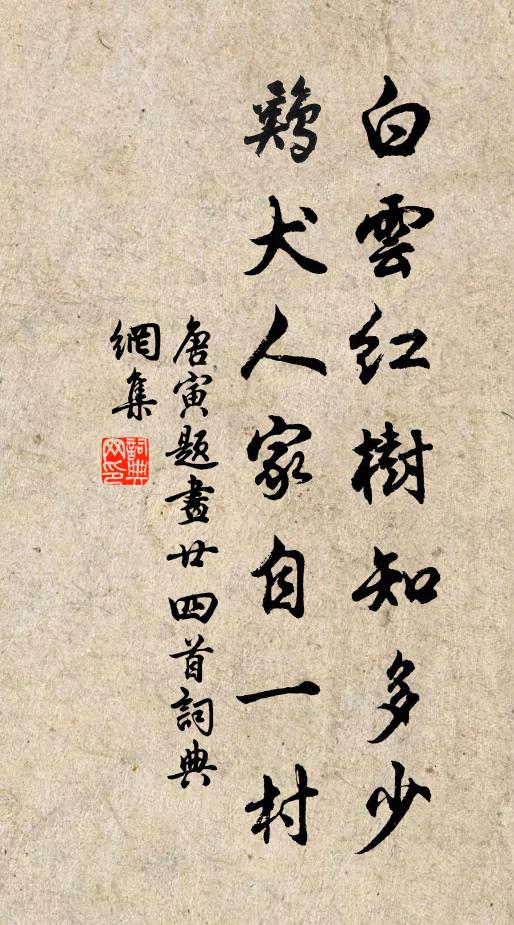 白雲紅樹知多少
鷄犬人家自一村
唐寅題畫廿四首詞典
網集
詞典
网印